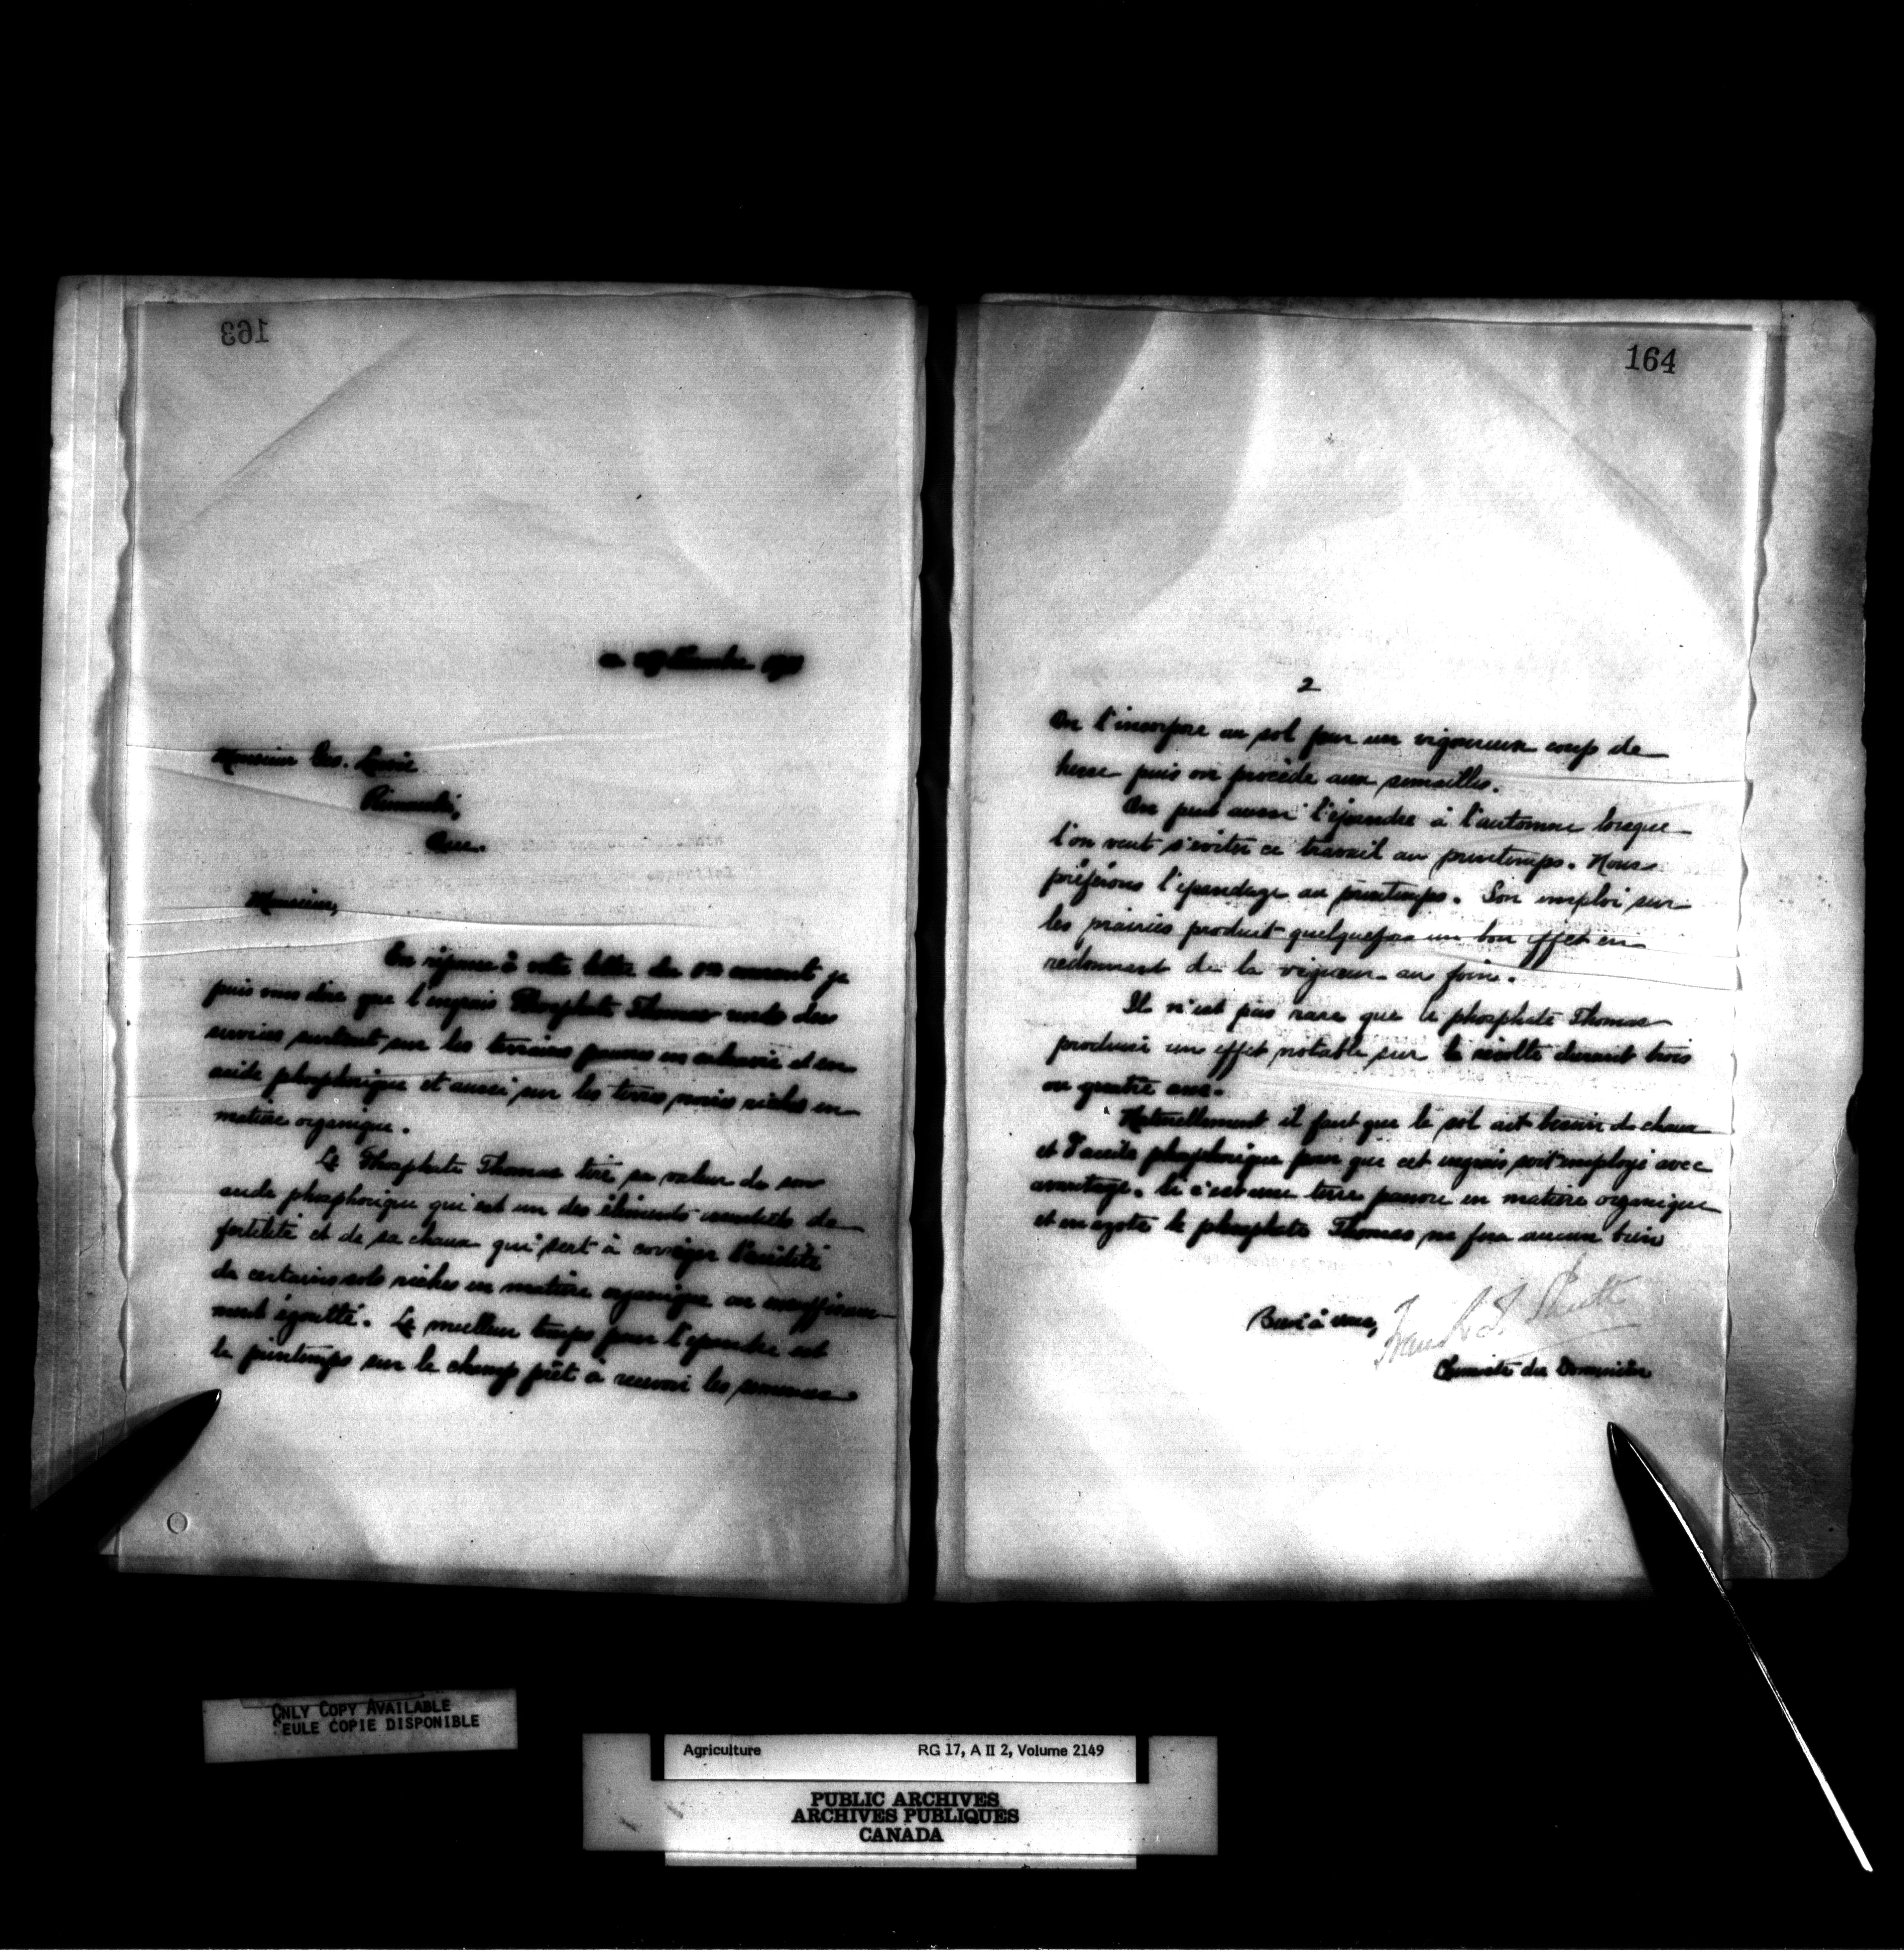 163
Monsieur
Rimouski,
Que.
Monsieur,
En réponse à votre lettre du courant je
puis vous dire que l'engrais Phosphate Thomas rend des
services surtout sur les terrains pauvres en et en
acide phosphorique et aussi sur les terres noires riches en
matière organique.
Le Phosphate Thomas tire sa valeur de son
acide phosphorique qui est un des éléments de
fertilité et de sa chaux qui sert à corriger l'acidité
de certains sols riches en matière organique ou insuffisam-
ment égoutté. Le meilleur temps pour l'épandre est
le printemps sur le champ prêt à recevoir les semences
164
2
On l'incorpore au sol par un vigoureux coup de
herse puis on procède aux semailles.
On peut aussi l'épandre à l'automne lorsque
l'on veut s'éviter ce travail au printemps. Nous
préférons l'épandage au printemps. Son emploi sur
les prairies produit quelquefois un bon effet en
redonnant de la vigueur au foin.
Il n'est pas rare que le phosphate Thomas
produise un effet notable sur la récolte durant trois
ou quatre ans.
Naturellement il faut que le sol ait besoin de chaux
et d'acide phosphorique pour que cet engrais soit employé avec
avantage. Si c'est une terre pauvre en matière organique
et en azote le phosphate Thomas ne fera aucun bien
Bien à vous,
Frank T. Shutt
Chimiste du Dominion
ONLY COPY AVAILABLE
SEULE COPIE DISPONIBLE
Agriculture RG 17, A II 2, Volume 2149
PUBLIC ARCHIVES
ARCHIVES PUBLIQUES
CANADA